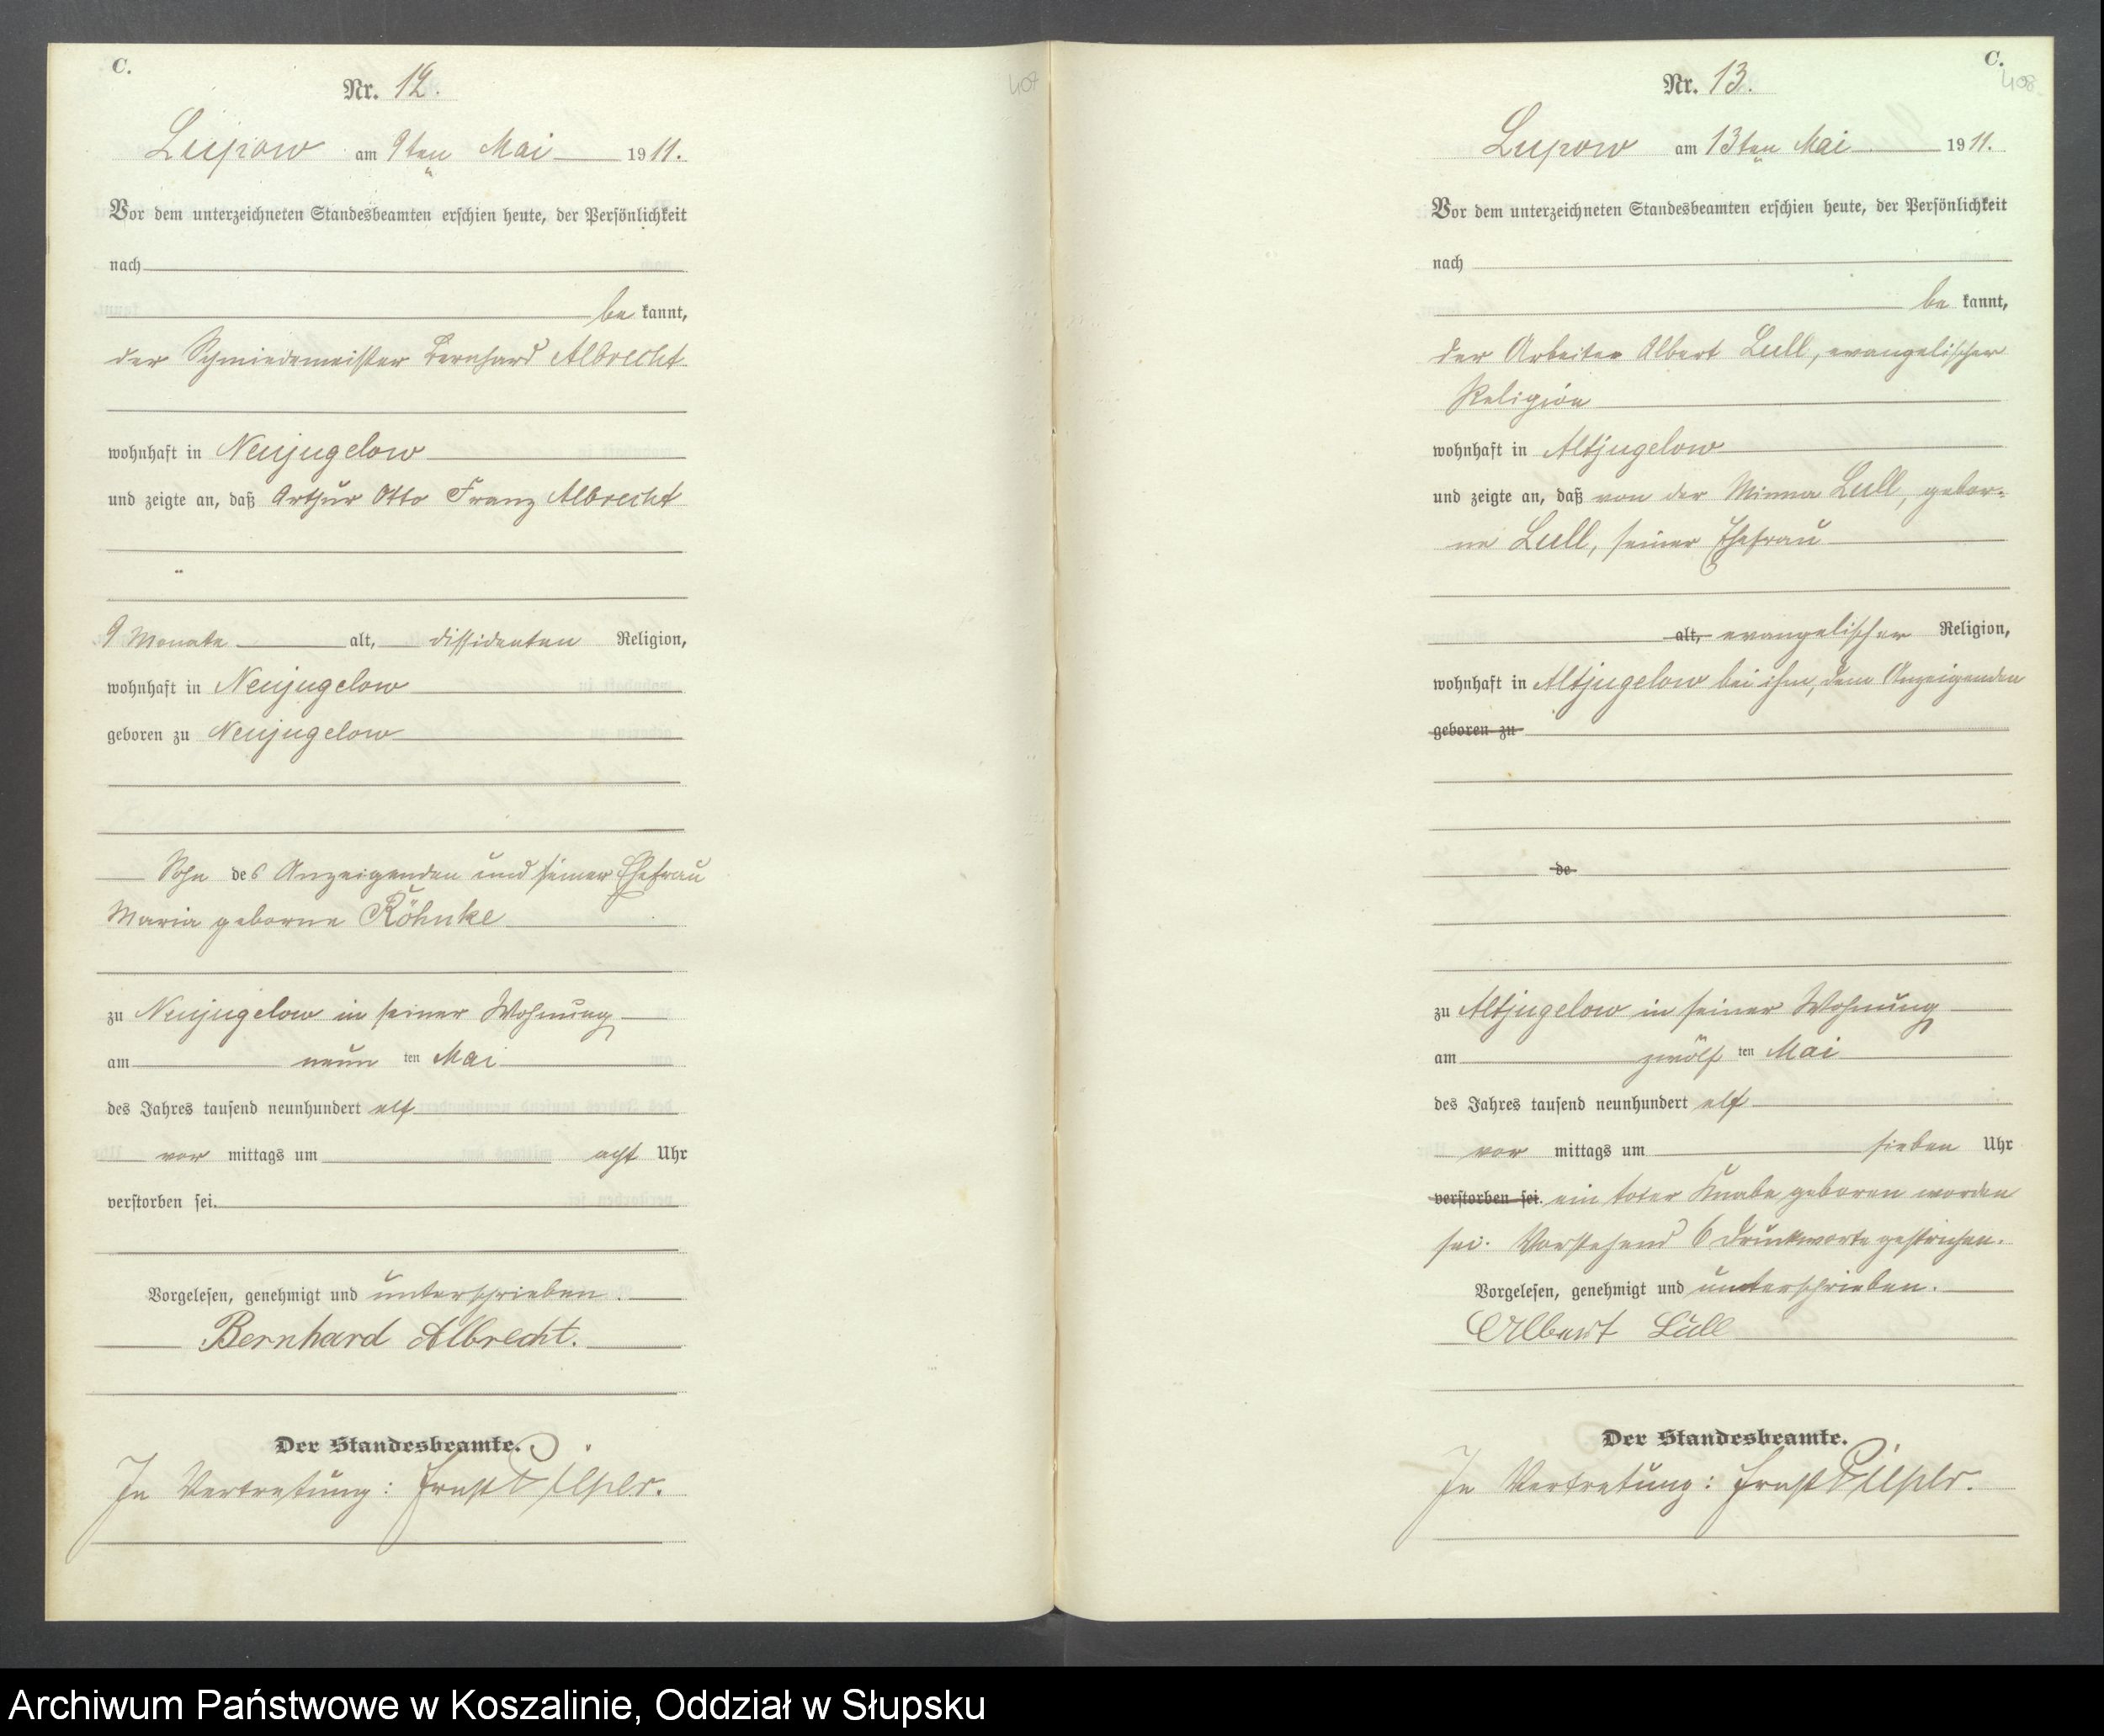 C.
Nr. 12.
407
Lupow am 9ten Mai 1911.
Vor dem unterzeichneten Standesbeamten erschien heute, der Persönlichkeit
nach
be kannt,
der Schmiedemeister Bernhard Albrecht
wohnhaft in Neujugelow
und zeigte an, daß Arthur Otto Franz Albrecht
9 Monate alt, dissidenten Religion,
wohnhaft in Neujugelow
geboren zu Neujugelow
Sohn des Anzeigenden und seiner Ehefrau
Maria geborne Röhnke
zu Neujugelow in seiner Wohnung
am neun ten Mai
des Jahres tausend neunhundert elf
vor mittags um acht Uhr
verstorben sei.
Vorgelesen, genehmigt und unterschrieben.
Bernhard Albrecht.
Der Standesbeamte.
In Vertretung: Ernst
C.
408
Nr. 13.
Lupow am 13ten Mai 1911.
Vor dem unterzeichneten Standesbeamten erschien heute, der Persönlichkeit
nach
be kannt,
der Arbeiter Albert Lull, evangelischer
Religion
wohnhaft in Altjugelow
und zeigte an, daß von der Minna Lull, gebor-
ne Lull, seiner Ehefrau
alt, evangelischer Religion,
wohnhaft in Altjugelow bei ihm, dem Anzeigenden
geboren zu
de
zu Altjugelow in seiner Wohnung
am zwölf ten Mai
des Jahres tausend neunhundert elf
vor mittags um sieben Uhr
verstorben sei. ein toter Knabe geboren worden
sei. Vorstehend 6 Druckworte gestrichen.
Vorgelesen, genehmigt und unterschrieben.
Albert Lull
Der Standesbeamte.
In Vertretung: Ernst
Archiwum Państwowe w Koszalinie, Oddział w Słupsku